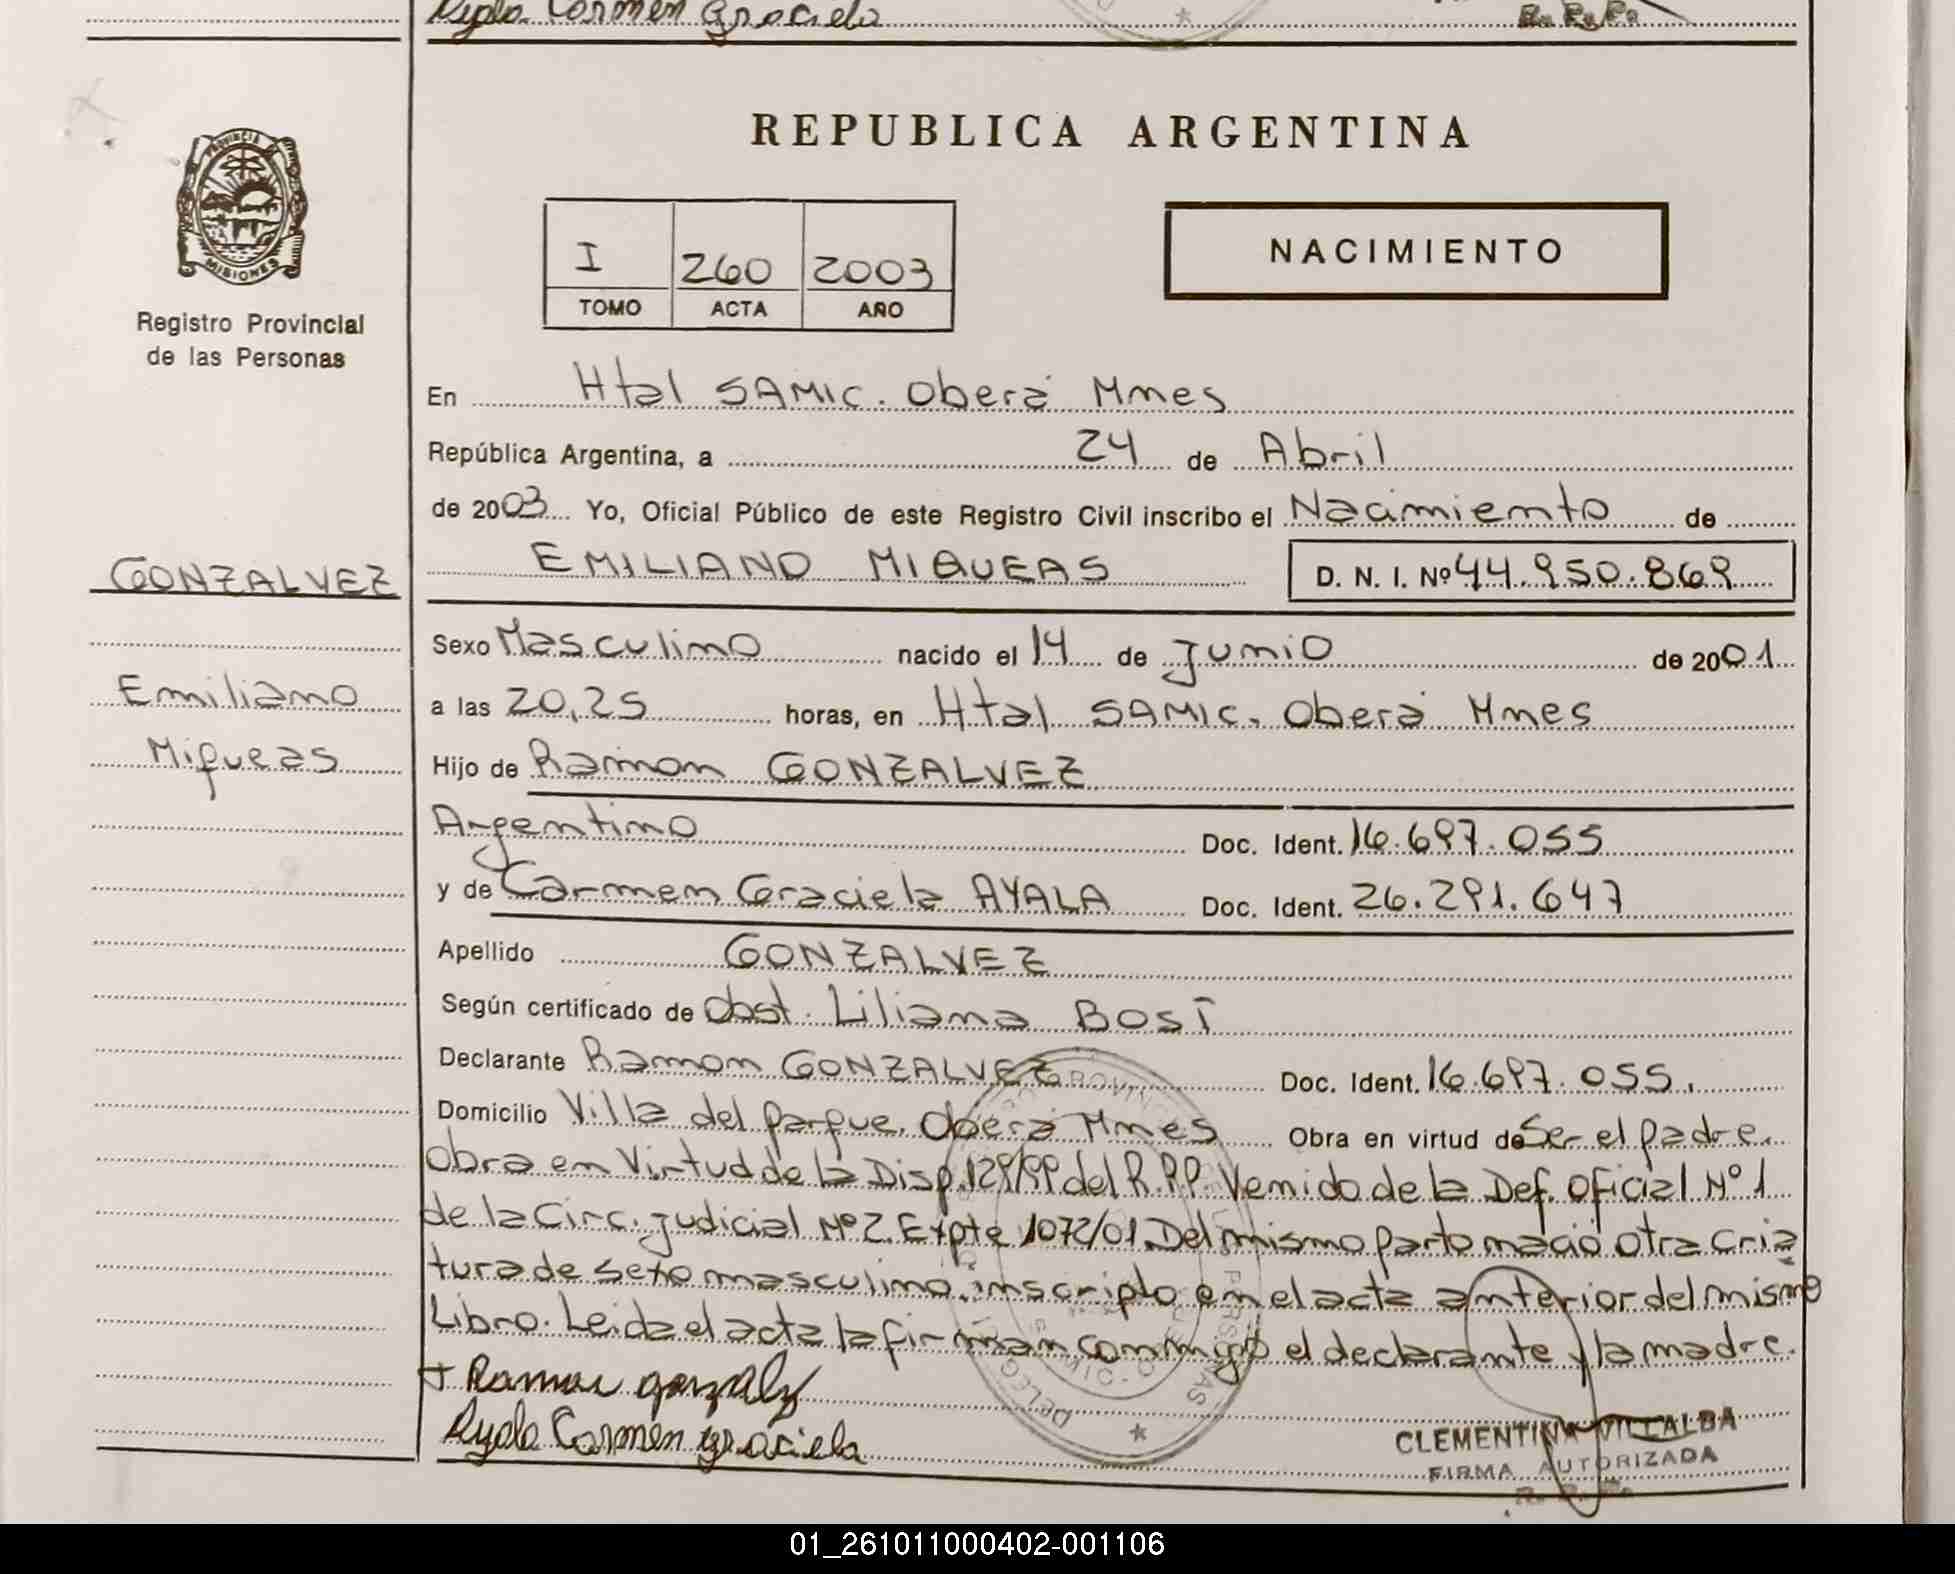 Ayala Carmen Graciela
R. P. P.
REPUBLICA ARGENTINA
PROVINCIA
MISIONES
Registro Provincial
de las Personas
I 260 2003
TOMO ACTA AÑO
NACIMIENTO
En Htal SAMIC. Oberá Mnes
República Argentina, a 24 de Abril
de 2003 Yo, Oficial Público de este Registro Civil inscribo el Nacimiento de
GONZALVEZ
EMILIANO MIQUEAS D. N. I. Nº 44.950.869
Sexo Masculino nacido el 14 de Junio de 2001
Emiliano
a las 20,25 horas, en Htal SAMIC. Oberá Mnes
Miqueas
Hijo de Ramon GONZALVEZ
Argentino Doc. Ident. 16.697.055
y de Carmen Graciela AYALA Doc. Ident. 26.291.647
Apellido GONZALVEZ
Según certificado de Obst. Liliana BOSI
Declarante Ramon GONZALVEZ Doc. Ident. 16.697.055.
Domicilio Villa del Parque. Oberá Mnes Obra en virtud de Ser el padre.
Obra en Virtud de la Disp. 129/99 del R.P.P. Venido de la Def. Oficial Nº 1
de la Circ. Judicial Nº 2. Expte 1072/01. Del mismo parto nació otra cria
tura de sexo masculino, inscripto en el acta anterior del mismo
Libro. Leida el acta la firman conmigo el declarante y la madre.
+ Ramon gonzalz
Ayala Carmen graciela
CLEMENTINA VILLALBA
FIRMA AUTORIZADA
R. P. P.
01_261011000402-001106